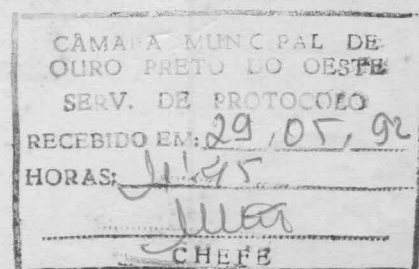 CÂMARA MUNICIPAL DE
OURO PRETO DO OESTE
SERV. DE PROTOCOLO
RECEBIDO EM: 29, 05, 92
HORAS:
CHEFE